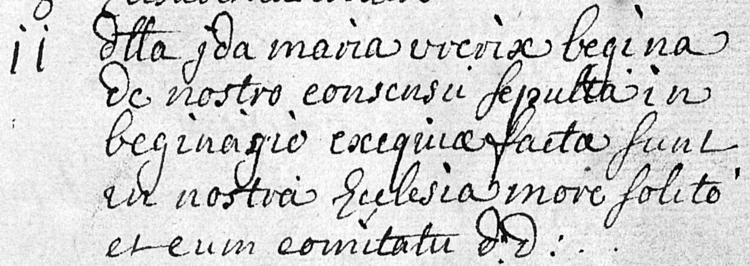 ii dtta jda maria vrerix begina
de nostro consensu sepulta in
beginagio exequiæ factæ sunt
in nostra Ecclesia more solito
et cum comitatu d.d:.